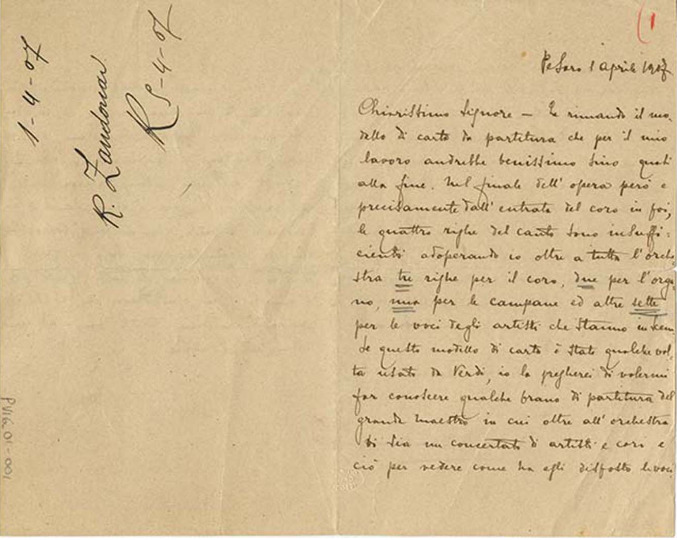 1-4-07
R. Zandonai
R 5-4-07
PVIG.01-001
(1
Pesaro 1 aprile 1907
Chiarissimo Signore - Le rimando il mo-
dello di carta da partitura che per il mio
lavoro andrebbe benissimo sino quasi
alla fine. Nel finale dell'opera però e
precisamente dall'entrata del coro in poi,
le quattro righe del canto sono insuffi-
cienti adoperando io oltre a tutta l'orche-
stra tre righe per il coro, due per l'orga-
no, una per le campane ed altre sette
per le voci degli artisti che stanno in scena.
Se questo modello di carta è stato qualche vol-
ta usato da Verdi, io la pregherei di volermi
far conoscere qualche brano di partitura del
grande maestro in cui oltre all'orchestra
vi sia un concertato di artisti e cori e
ciò per vedere come ha egli disposto le voci